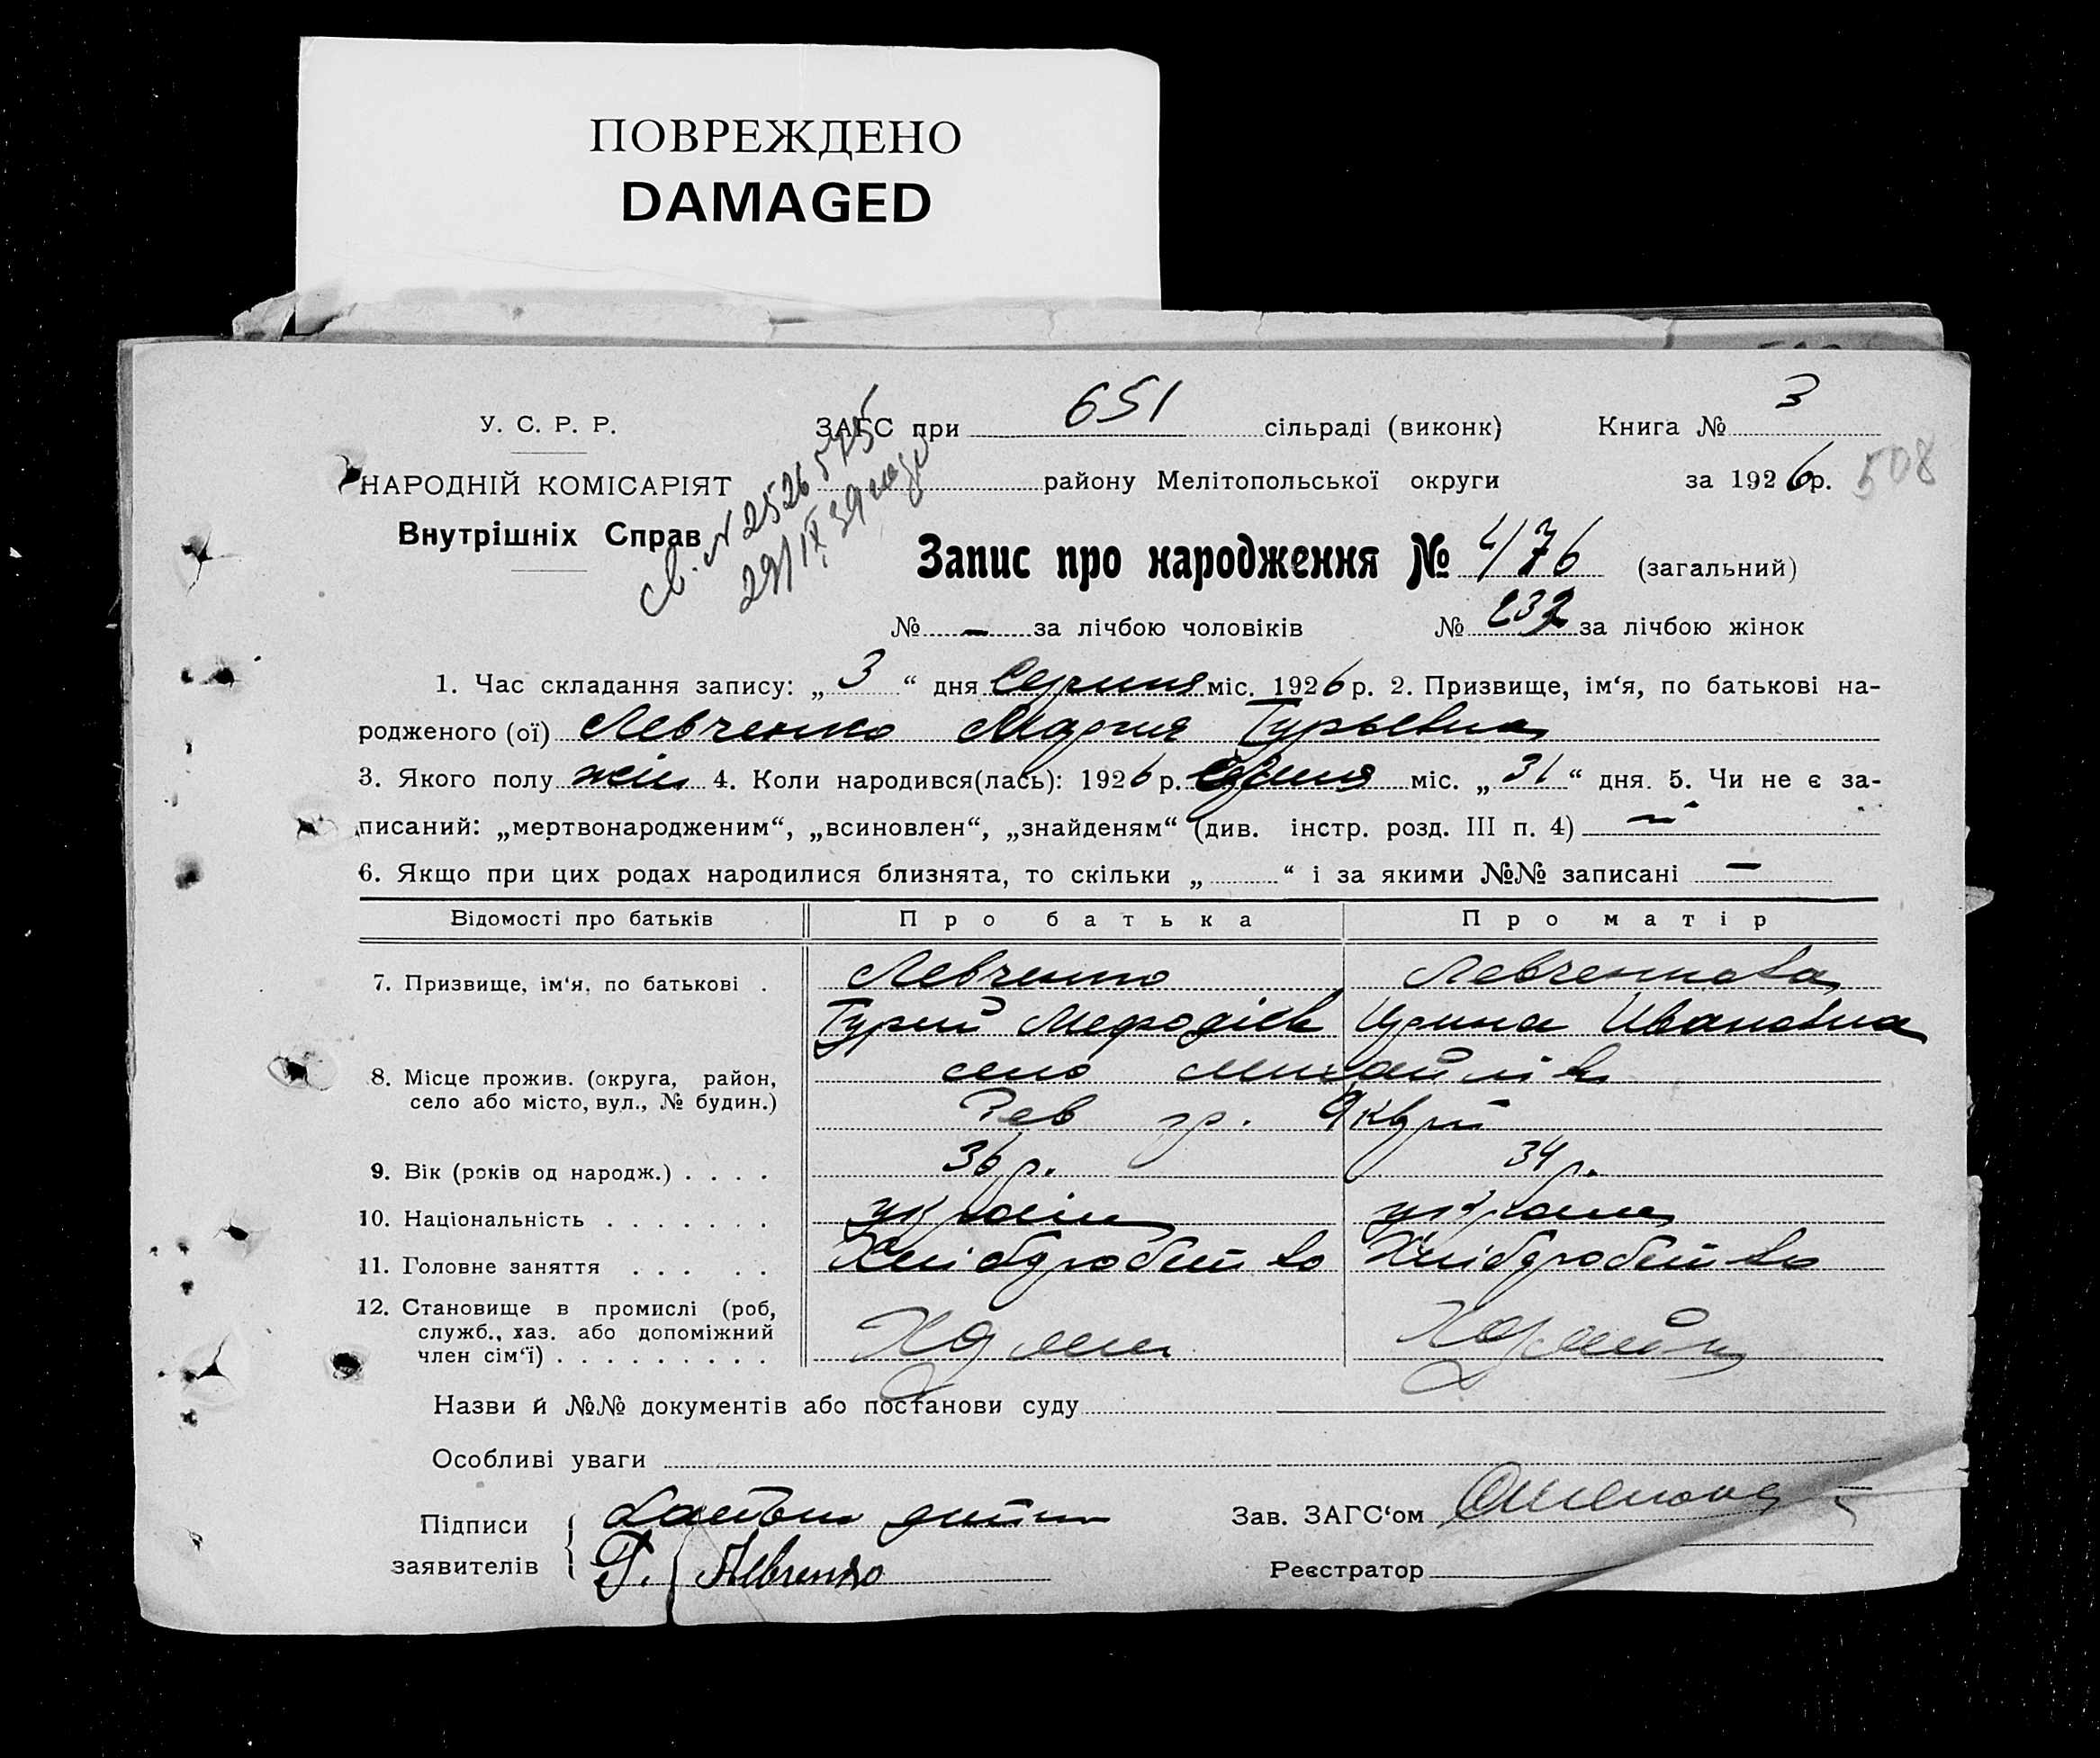 ПОВРЕЖДЕНО
DAMAGED
У. С. Р. Р.
ЗАГС при 651 сільраді (виконк) Книга № 3
НАРОДНІЙ КОМІСАРІЯТ
району Мелітопольської округи за 1926 р. 508
Внутрішніх Справ
св. № 2526
29/IX 39
Запис про народження № 476 (загальний)
№ — за лічбою чоловіків № 232 за лічбою жінок
1. Час складання запису: „ 3 “ дня Серпня міс. 1926 р. 2. Призвище, ім‘я, по батькові на-
родженого (ої) Левченко Мария Гурьевна
3. Якого полу жін 4. Коли народився(лась): 1926 р. міс. „ 31 “ дня. 5. Чи не є за-
писаний: „мертвонародженим“, „всиновлен“, „знайденям“ (див. інстр. розд. III п. 4) —
6. Якщо при цих родах народилися близнята, то скільки „ “ і за якими №№ записані —
Відомості про батьків Про батька Про матір
7. Призвище, ім‘я, по батькові . Левченко Левченкова
Гурий Мефодіев Ирина Ивановна
8. Місце прожив. (округа, район, село Михайлівк
село або місто, вул., № будин.)
Рев гр.
9. Вік (років од народж.) . . . . 36 р. 34 р.
10. Національність . . . . . . . україн украин
11. Головне заняття . . . . . Хлібдробство Хлібдробство
12. Становище в промислі (роб,
служб., хаз. або допоміжний
член сім‘ї) . . . . . . . . . Хазяин Хазяйк
Назви й №№ документів або постанови суду
Особливі уваги
Підписи
заявителів
Батько дитини
Г. Левченко
Зав. ЗАГС‘ом
Реєстратор